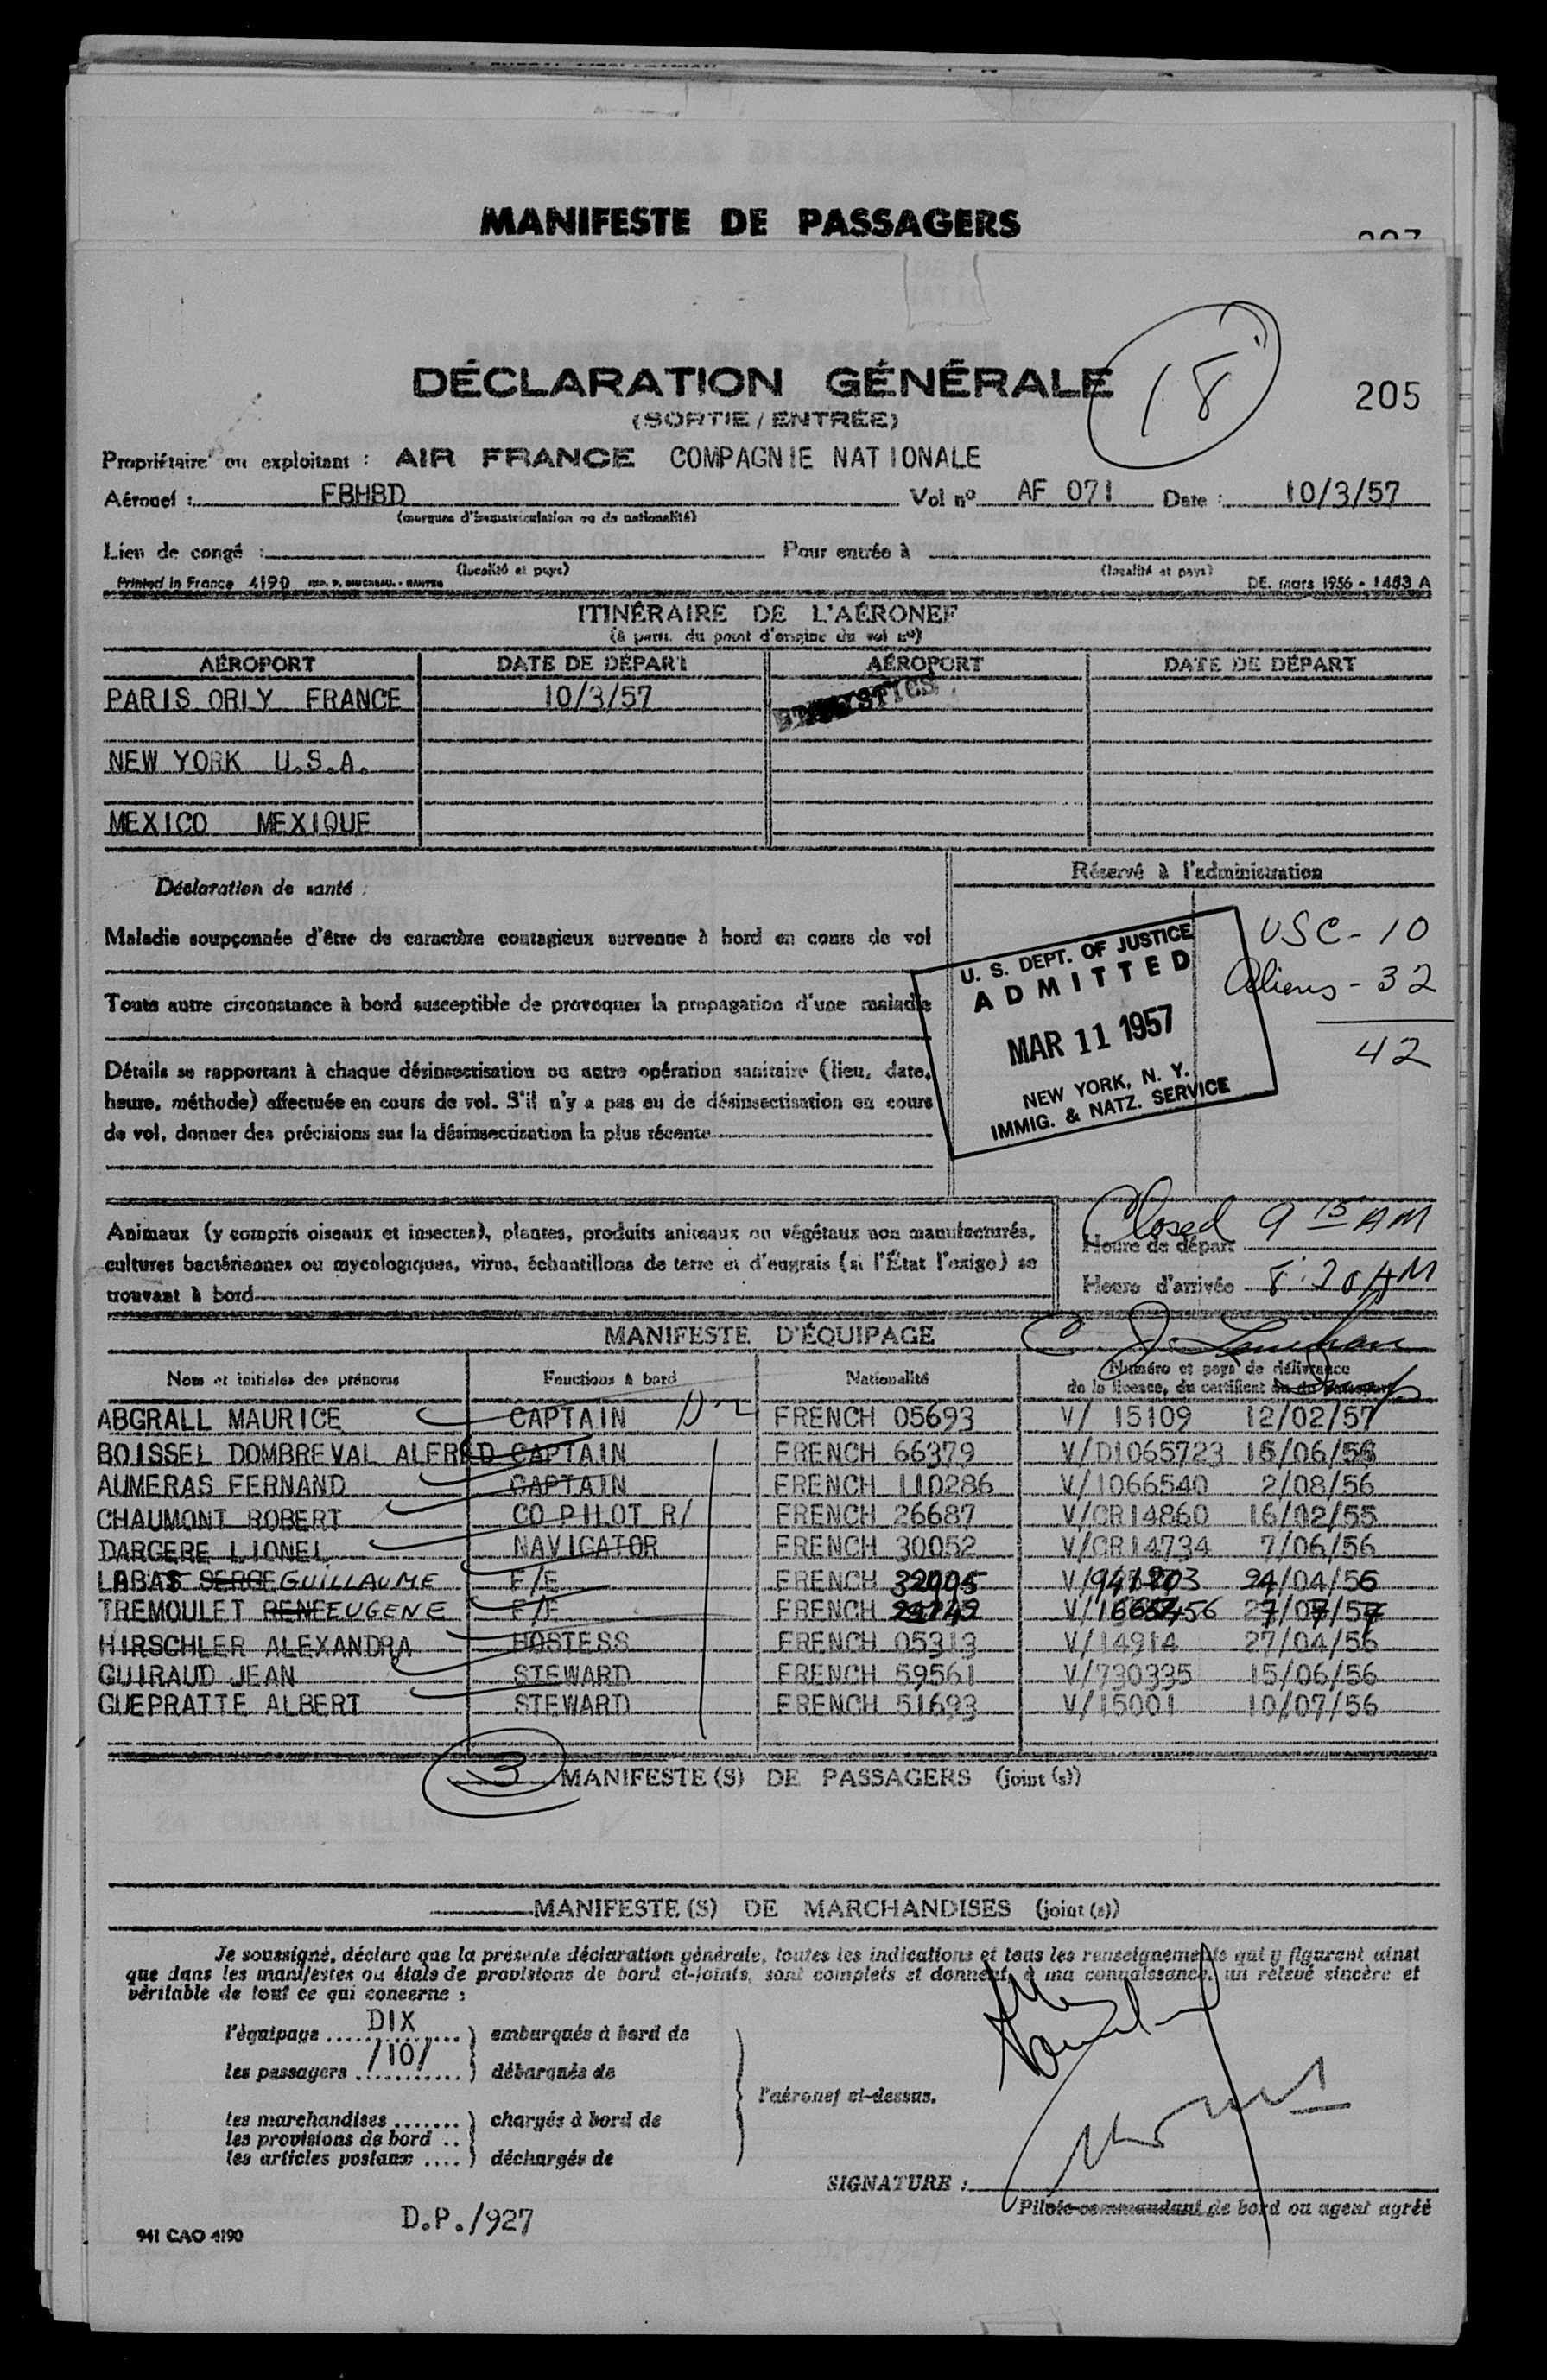 MANIFESTE DE PASSAGERS
DÉCLARATION GÉNÉRALE
18
205
(SORTIE / ENTRÉE)
Propriétaire ou exploitant : AIR FRANCE COMPAGNIE NATIONALE
Aéronef : FBHBD Vol nº AF 071 Date : 10/3/57
(marques d'immatriculation ou de nationalité)
Lieu de congé : Pour entrée à
(localité et pays) (localité et pays)
Printed in France 4190 DE. mars 1956 - 1483 A
ITINÉRAIRE DE L'AÉRONEF
(à partir du point d'origine du vol nº)
AÉROPORT DATE DE DÉPART AÉROPORT DATE DE DÉPART
PARIS ORLY FRANCE 10/3/57
NEW YORK U.S.A.
MEXICO MEXIQUE
Déclaration de santé :
Réservé à l'administration
Maladie soupçonnée d'être de caractère contagieux survenue à bord en cours de vol
Toute autre circonstance à bord susceptible de provoquer la propagation d'une maladie
Détails se rapportant à chaque désinsectisation ou autre opération sanitaire (lieu, date,
heure, méthode) effectuée en cours de vol. S'il n'y a pas eu de désinsectisation en cours
de vol, donner des précisions sur la désinsectisation la plus récente
U. S. DEPT. OF JUSTICE
ADMITTED
MAR 11 1957
NEW YORK, N. Y.
IMMIG. & NATZ. SERVICE
USC - 10
Aliens - 32
42
Animaux (y compris oiseaux et insectes), plantes, produits animaux ou végétaux non manufacturés,
cultures bactériennes ou mycologiques, virus, échantillons de terre et d'engrais (si l'État l'exige) se
trouvant à bord
Closed 9 15 AM
Heure de départ
Heure d'arrivée 8:20 AM
MANIFESTE D'ÉQUIPAGE
Nom et initiales des prénoms Fonctions à bord Nationalité Numéro et pays de délivrance
de la licence, du certificat ou du
ABGRALL MAURICE CAPTAIN FRENCH 05693 V/ 15109 12/02/57
BOISSEL DOMBREVAL ALFRED CAPTAIN FRENCH 66379 V/D1065723 15/06/56
AUMERAS FERNAND CAPTAIN FRENCH 110286 V/1066540 2/08/56
CHAUMONT ROBERT CO PILOT R/ FRENCH 26687 V/CR14860 16/02/55
DARGERE LIONEL NAVIGATOR FRENCH 30052 V/CR14734 7/06/56
LABAT SERGE GUILLAUME F/E FRENCH V/ 24/04/56
TREMOULET RENE EUGENE F/E FRENCH V/
HIRSCHLER ALEXANDRA HOSTESS FRENCH 05313 V/14914 27/04/56
GUIRAUD JEAN STEWARD FRENCH 59561 V/730335 15/06/56
GUEPRATTE ALBERT STEWARD FRENCH 51693 V/15001 10/07/56
3 MANIFESTE (S) DE PASSAGERS (joint (s))
MANIFESTE (S) DE MARCHANDISES (joint (s))
Je soussigné, déclare que la présente déclaration générale, toutes les indications et tous les renseignements qui y figurent ainsi
que dans les manifestes ou états de provisions de bord ci-joints, sont complets et donnent, à ma connaissance, un relevé sincère et
véritable de tout ce qui concerne :
l'équipage DIX embarqués à bord de
/10/
les passagers débarqués de
l'aéronef ci-dessus.
les marchandises chargés à bord de
les provisions de bord
les articles postaux déchargés de
SIGNATURE :
Pilote commandant de bord ou agent agréé
D.P./927
941 CAO 4190